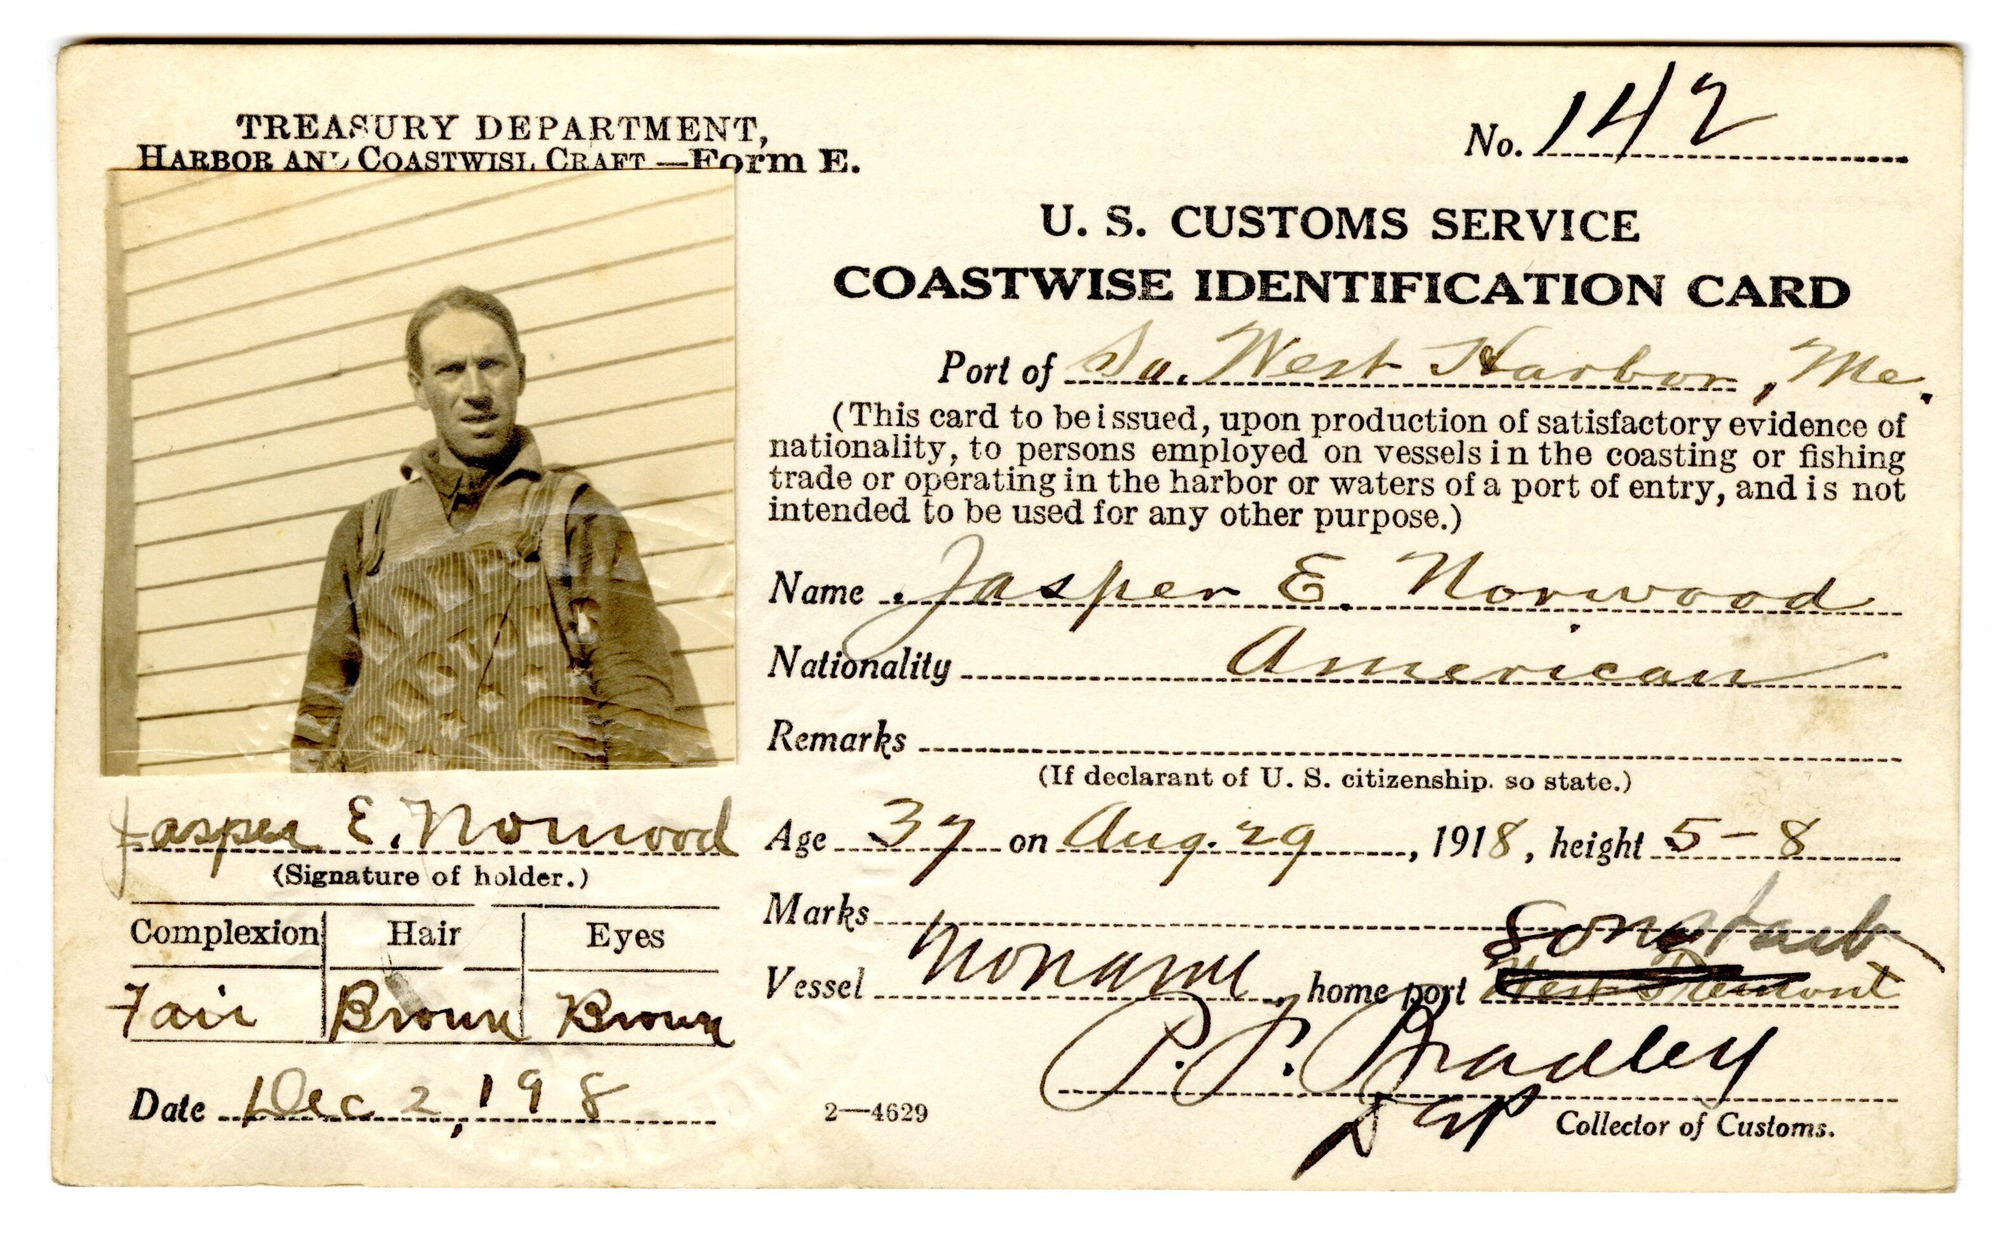 TREASURY DEPARTMENT,
HARBOR AND COASTWISE CRAFT—Form E.
No. 142
U. S. CUSTOMS SERVICE
COASTWISE IDENTIFICATION CARD
Port of So. West Harbor, Me.
(This card to be issued, upon production of satisfactory evidence of
nationality, to persons employed on vessels in the coasting or fishing
trade or operating in the harbor or waters of a port of entry, and is not
intended to be used for any other purpose.)
Name Jasper E. Norwood
Nationality American
Remarks
(If declarant of U. S. citizenship. so state.)
Age 37 on Aug. 29, 1918, height 5-8
Marks
Vessel Noname, home port West Tremont
P. P. Bradley
Dep Collector of Customs.
Jasper E. Norwood
(Signature of holder.)
Complexion Hair Eyes
Fair Brown Brown
Date Dec 2, 198
2—4629